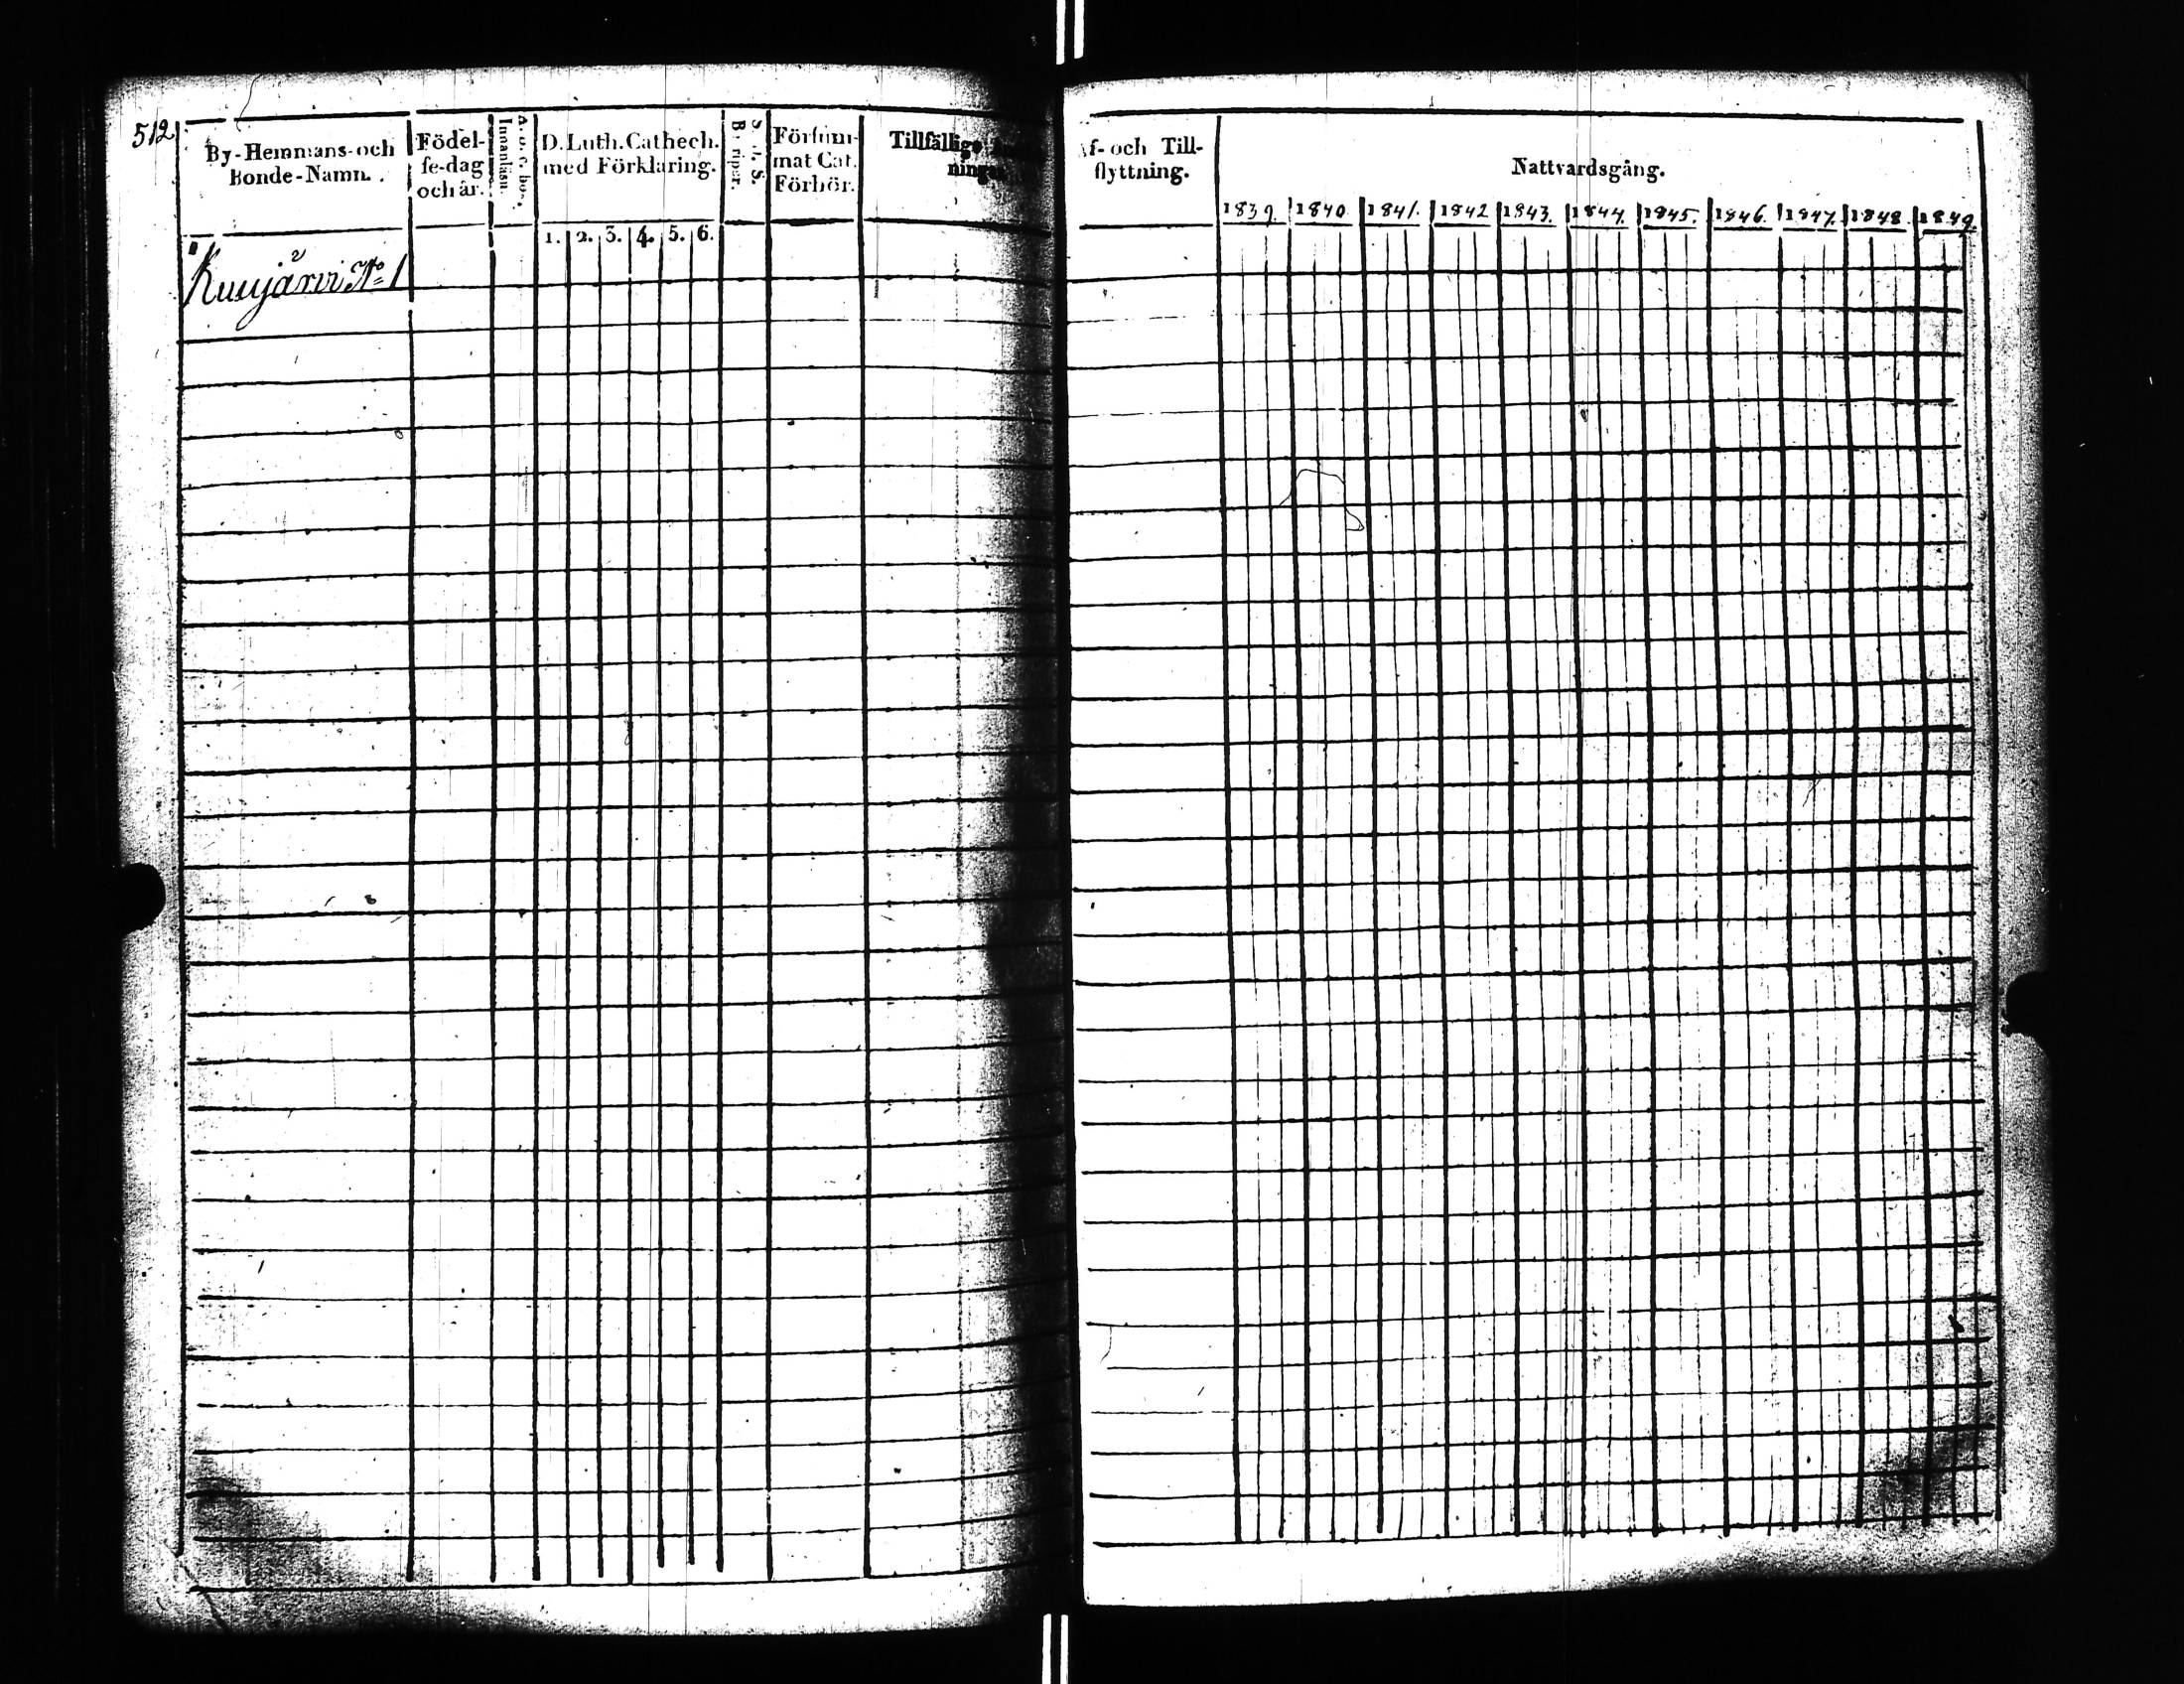 512
By-Hemmans- och
Bonde-Namn.
Födel-
se-dag
och år.
Innanläsn.
D. Luth. Cathech.
med Förklaring.
1. 2. 3. 4. 5. 6.
Försum-
mat Cat.
Förhör.
Tillfällige
Af- och Till-
flyttning.
Nattvardsgång.
1839. 1840. 1841. 1842 1843. 1844. 1845. 1846. 1847. 1848 1849.
No 1